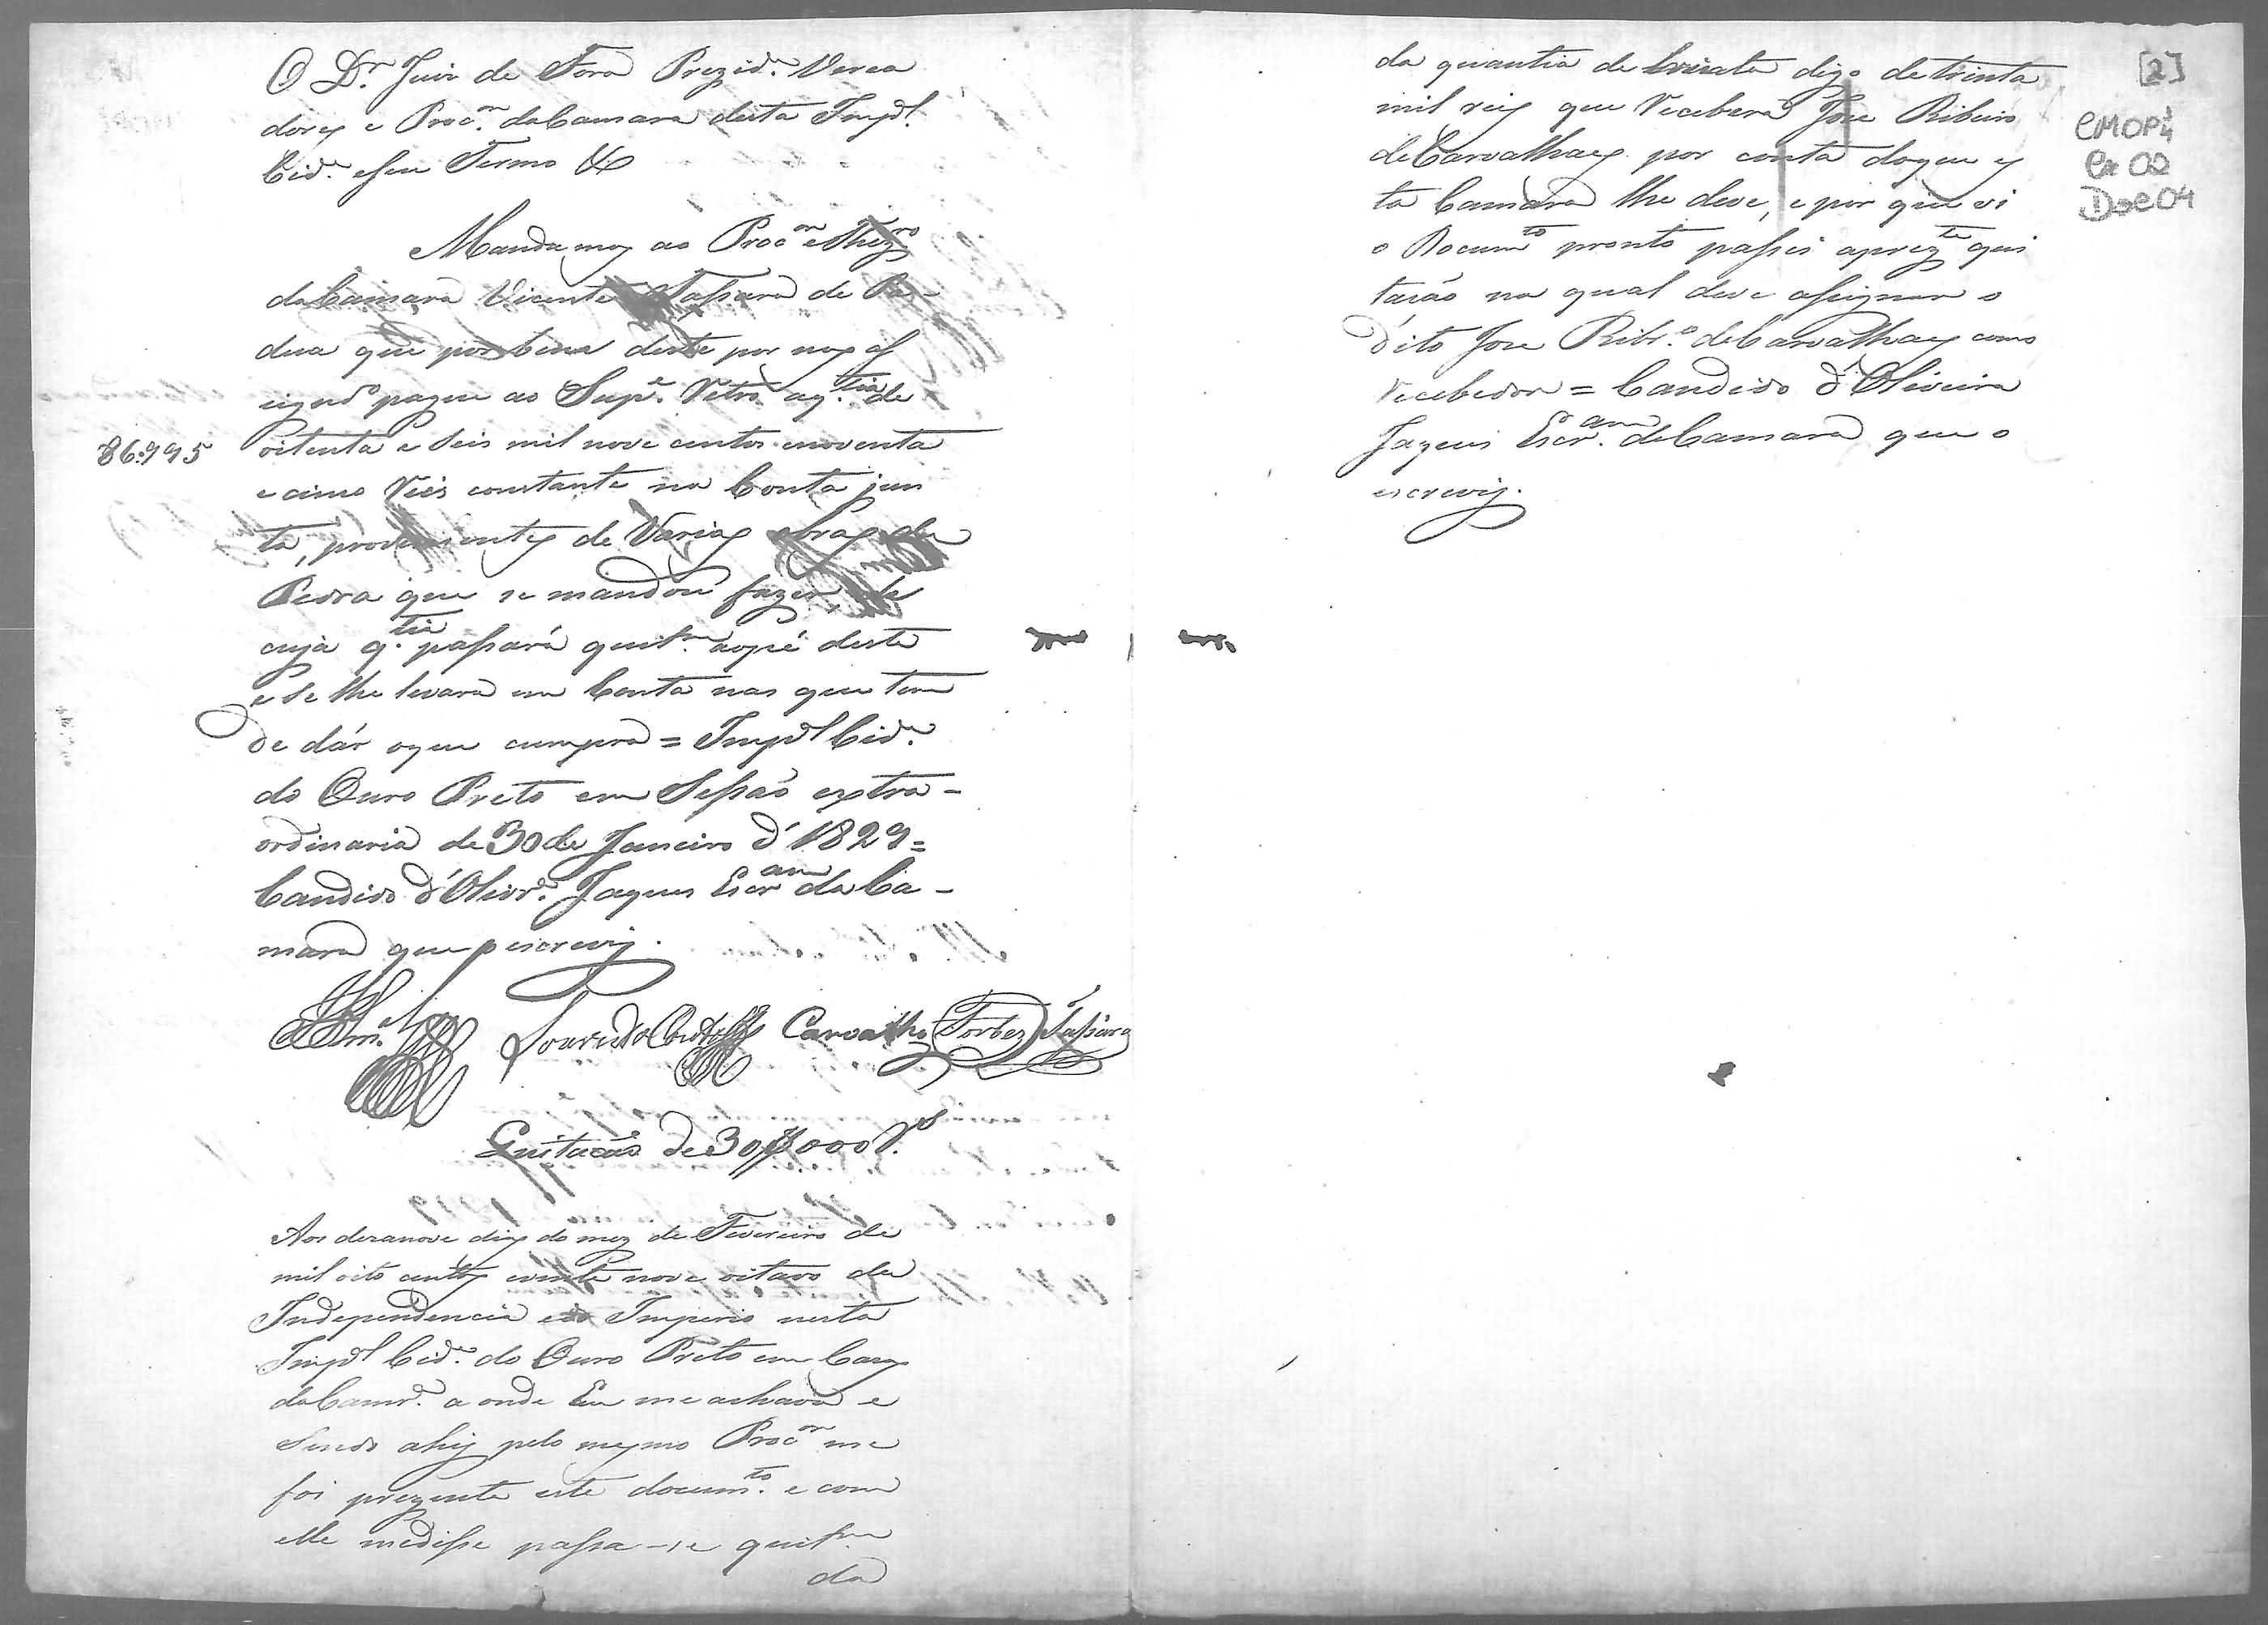 O D.r Juiz de Fora Prezid.e Verea
dores e Proc.or da Camara desta Imp.al
Cid.e e seu Termo &
Mandamos ao Proc.or e Thez.ro
da Camara Vicente Tassara de Pa-
dua que por bem deste por nos as
signd.o pague ao Sup.e Retro a q.tia de
86.995 oitenta e seis mil nove centos enoventa
e cinco Reis constante na Conta jun
ta, provenientes de Varias obras de
Pedra que se mandou fazer, de
cuja q.tia passará quit.am ao pé deste
e se lhe levará em Conta nas que tem
de dár oque cumpra = Imp.al Cid.e
do Ouro Preto em Sessão extra-
ordinaria de 30 de Janeiro d'1829=
Candido d'Olivr.a Jaques Escr.am da Ca-
mara que o escrevij.
Carvalho Forbes Tassara
Quitação de 30$000 r.s
Aos dezanove dias do mez de Fevereiro de
mil oito centos evinte nove oitavo da
Independencia e do Imperio nesta
Imp.al Cid.e do Ouro Preto em Caza
da Camr.a a onde Eu me achava e
sendo ahij pelo mesmo Proc.or me
foi prezente este docum.to e com
elle medisse passa-se quit.am
da
da quantia de digo de trinta
mil reis que Recebera Jose Ribeiro
de Carvalhaes por conta doque es
ta Camara lhe deve, e por que vi
o Docum.to pronto passei aprez.te qui
tacáo na qual deve assignar o
dito Jose Ribr.o de Carvalhaes como
recebedor = Candido d'Oliveira
Jaques Escr.am da Camara que o
escrevij.
[2]
CMOP
Cx 02
Doc 04